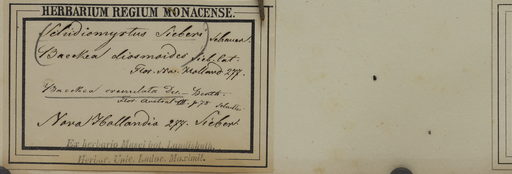 HERBARIUM REGIUM MONACENSE.
Schidiomyrtus Sieberi Schauer.
Baeckea diosmoides Sieb.
Flor. Nov. Holland 277.
Baeckea crenulata DC. — Benth.
Flor. Austral. III. p. 78
Nova Hollandia 277. Sieber.
Ex herbario Musei bot. Landishuth.
Herbar. Univ. Ludov. Maximil.